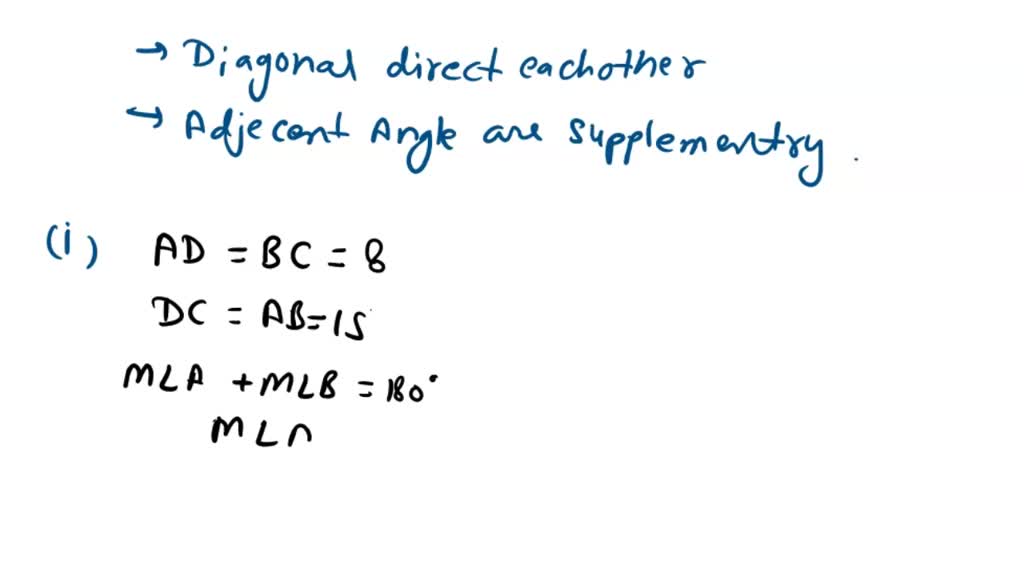 → Diagonal direct eachother
↪ Adjecent Angle are supplementry .
(i) AD = BC = 8
DC = AB = 15
M∠A + M∠B = 180°
M∠A